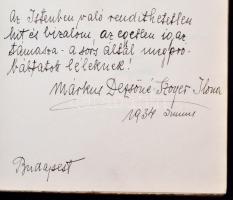 Az Istenben való rendithetetlen
hit és bizalom, az egyetlen igaz
támasza - a sors által megpró-
báltatott léleknek!
Márkus Dezsőné Szoyer Ilona
1934
Budapest